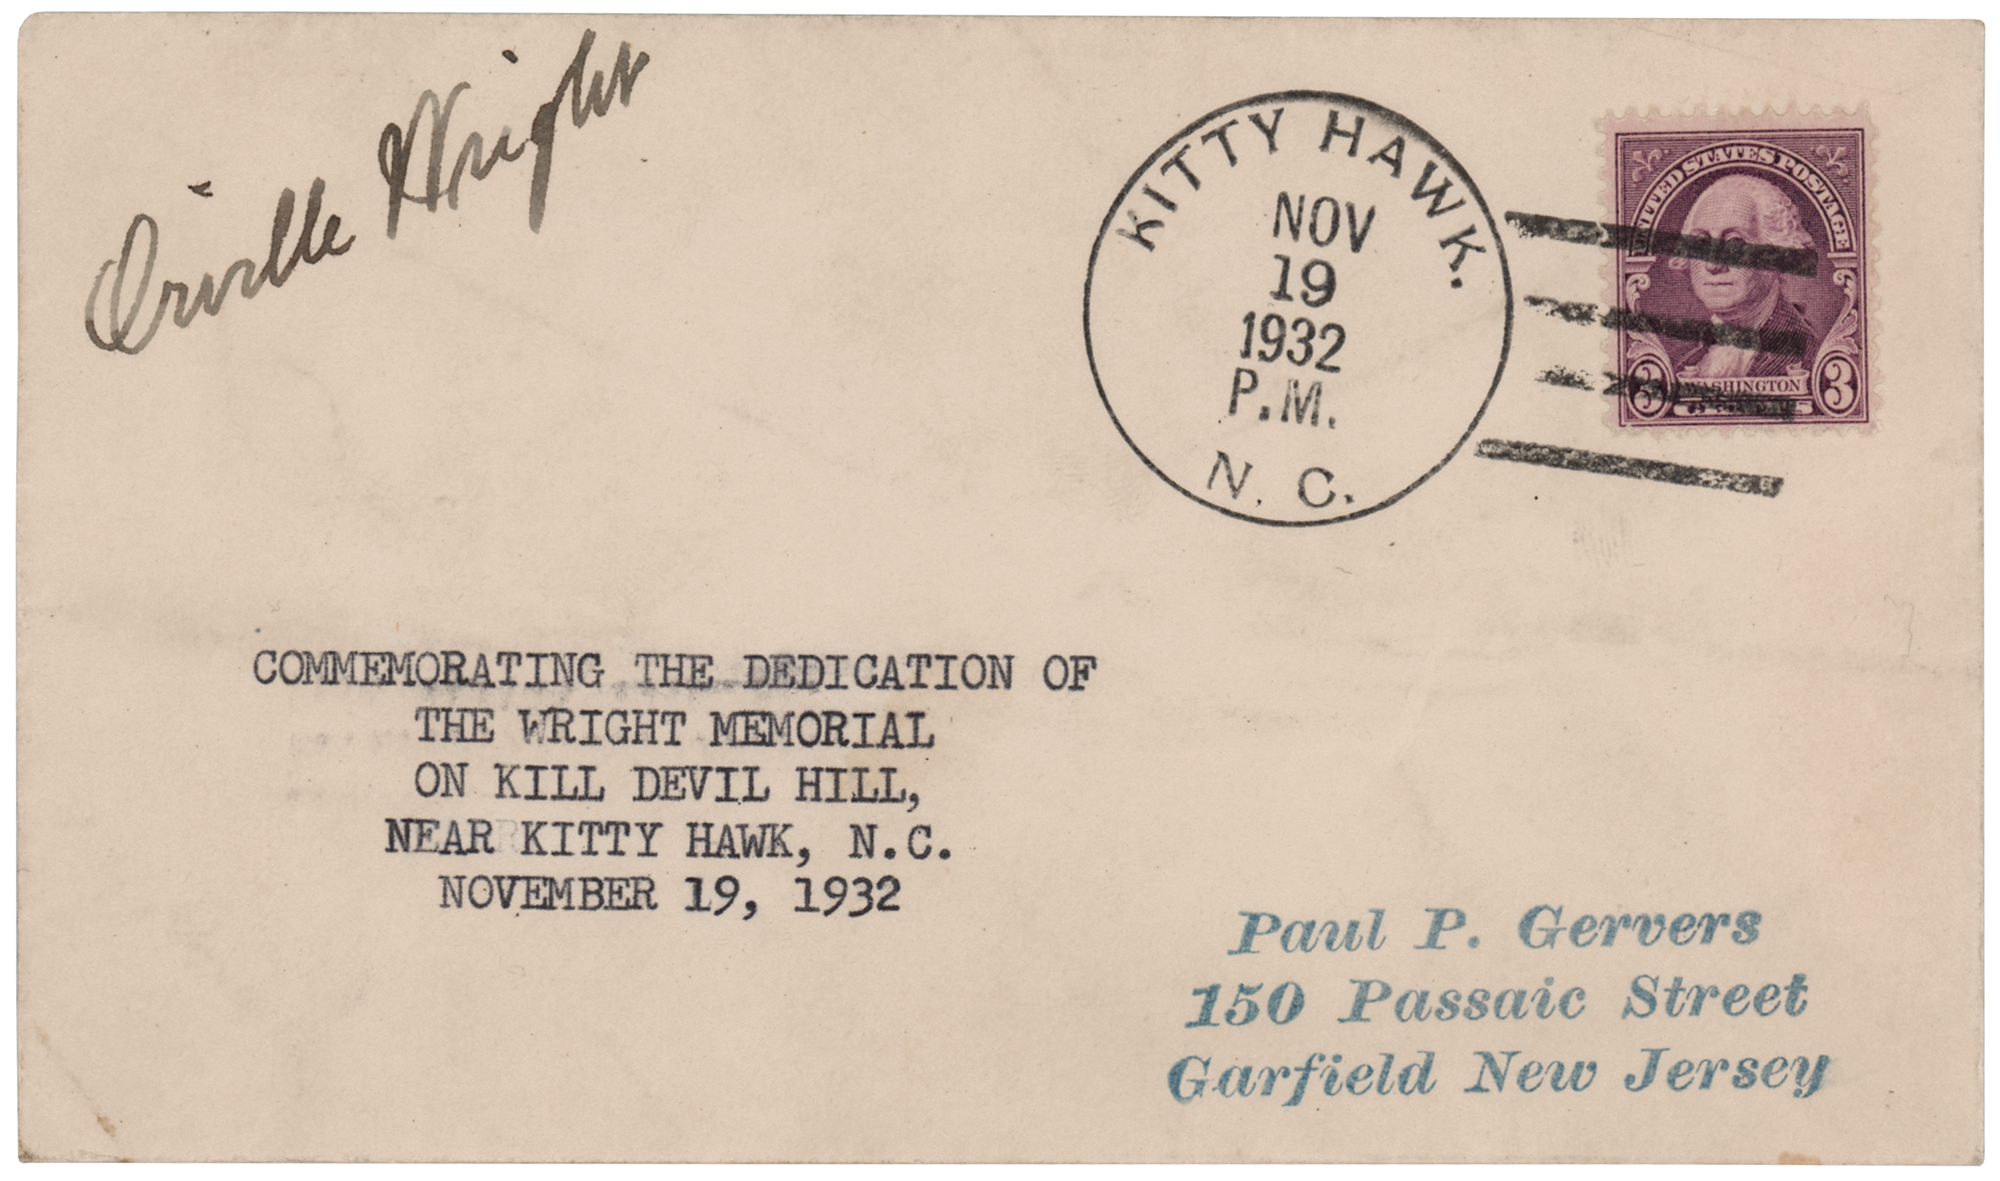 Orville Wright
KITTY HAWK.
NOV
19
1932
P.M.
N. C.
UNITED STATES POSTAGE
3 WASHINGTON 3
COMMEMORATING THE DEDICATION OF
THE WRIGHT MEMORIAL
ON KILL DEVIL HILL,
NEAR KITTY HAWK, N.C.
NOVEMBER 19, 1932
Paul P. Gervers
150 Passaic Street
Garfield New Jersey